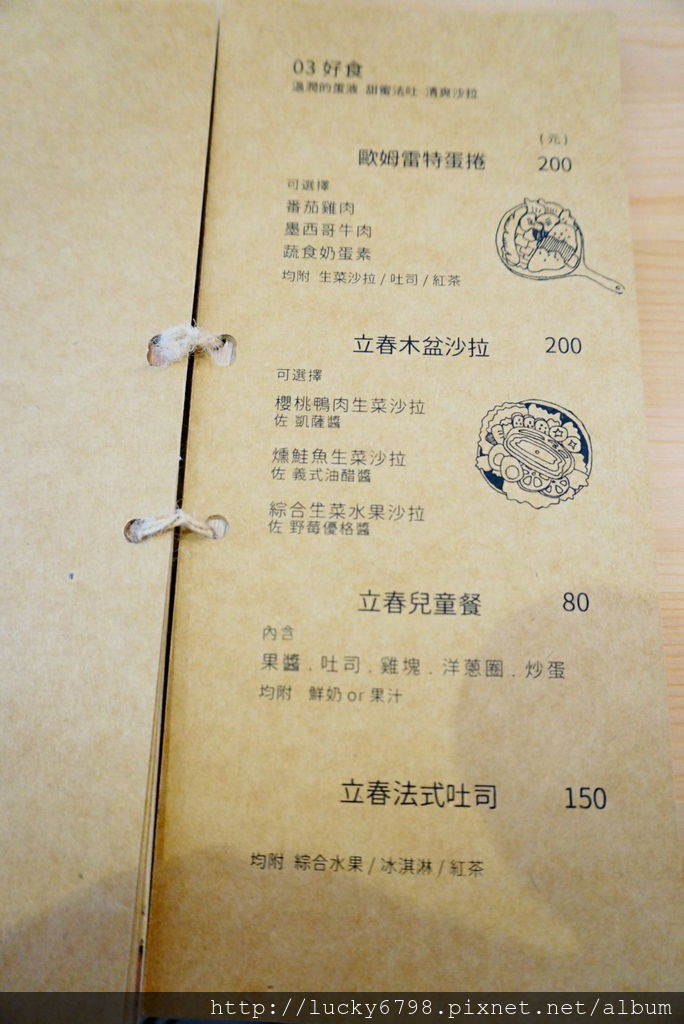 03 好食
溫潤的蛋液 甜蜜法吐 清爽沙拉
(元)
歐姆雷特蛋捲 200
可選擇
番茄雞肉
墨西哥牛肉
蔬食奶蛋素
均附 生菜沙拉 / 吐司 / 紅茶
立春木盆沙拉 200
可選擇
櫻桃鴨肉生菜沙拉
佐 凱薩醬
燻鮭魚生菜沙拉
佐 義式油醋醬
綜合生菜水果沙拉
佐 野莓優格醬
立春兒童餐 80
內含
果醬 . 吐司 . 雞塊 . 洋蔥圈 . 炒蛋
均附 鮮奶 or 果汁
立春法式吐司 150
均附 綜合水果 / 冰淇淋 / 紅茶
http://lucky6798.pixnet.net/album